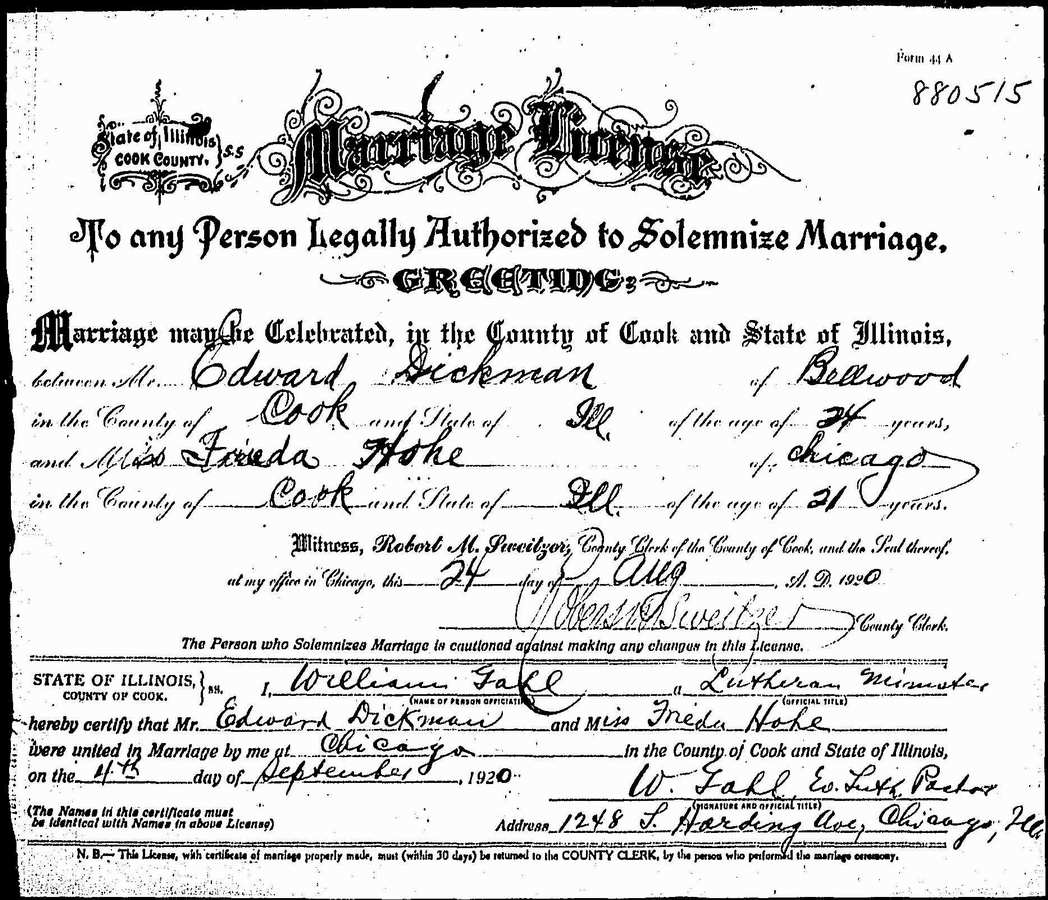 Form 44 A
880515
State of Illinois
COOK COUNTY. } S.S
Marriage License
To any Person Legally Authorized to Solemnize Marriage,
GREETING:
Marriage may be Celebrated, in the County of Cook and State of Illinois,
between Mr. Edward Dickman of Bellwood
in the County of Cook and State of Ill. of the age of 24 years,
and Miss Frieda Hohe of Chicago
in the County of Cook and State of Ill. of the age of 21 years.
Witness, Robert M. Sweitzer, County Clerk of the County of Cook, and the Seal thereof,
at my office in Chicago, this 24 day of Aug A. D. 1920
Robert M Sweitzer County Clerk.
The Person who Solemnizes Marriage is cautioned against making any changes in this License.
STATE OF ILLINOIS, } ss. I, William Gahl a Lutheran Minister
COUNTY OF COOK. (NAME OF PERSON OFFICIATING) (OFFICIAL TITLE)
hereby certify that Mr. Edward Dickman and Miss Frieda Hohe
were united in Marriage by me at Chicago in the County of Cook and State of Illinois,
on the 4th day of September, 1920
W. Gahl, Ev. Luth. Pastor
(SIGNATURE AND OFFICIAL TITLE)
(The Names in this certificate must
be identical with Names in above License)
Address 1248 S. Harding Ave, Chicago, Ill.
N. B.— This License, with certificate of marriage properly made, must (within 30 days) be returned to the COUNTY CLERK, by the person who performed the marriage ceremony.